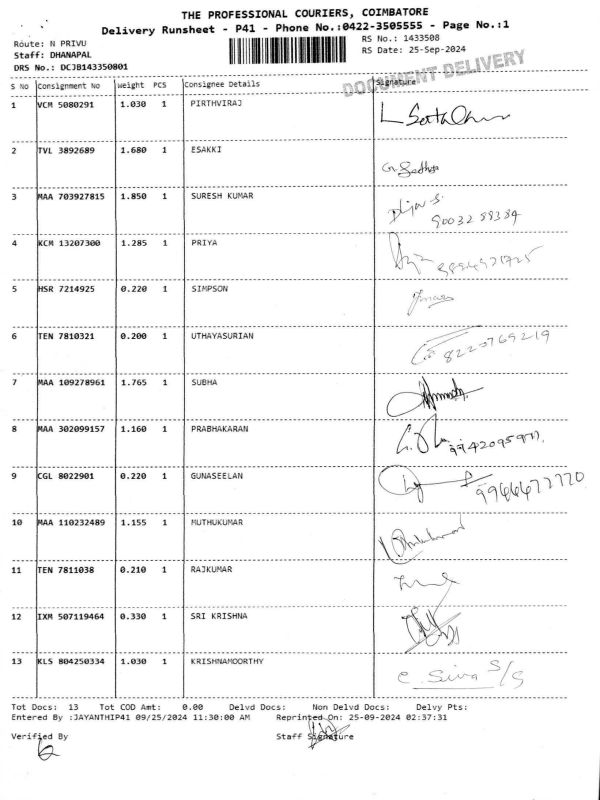 THE PROFESSIONAL COURIERS, COIMBATORE
Delivery Runsheet - P41 - Phone No.:0422-3505555 - Page No.:1
Route: N PRIVU RS No.: 1433508
Staff: DHANAPAL RS Date: 25-Sep-2024
DRS No.: DCJB143350801
DOCUMENT DELIVERY
S No Consignment No Weight PCS Consignee Details Signature
1 VCM 5080291 1.030 1 PIRTHVIRAJ
2 TVL 3892689 1.680 1 ESAKKI
3 MAA 703927815 1.850 1 SURESH KUMAR
9003288384
4 KCM 13207300 1.285 1 PRIYA
5 HSR 7214925 0.220 1 SIMPSON
6 TEN 7810321 0.200 1 UTHAYASURIAN
8220769219
7 MAA 109278961 1.765 1 SUBHA
8 MAA 302099157 1.160 1 PRABHAKARAN
9 CGL 8022901 0.220 1 GUNASEELAN
10 MAA 110232489 1.155 1 MUTHUKUMAR
11 TEN 7811038 0.210 1 RAJKUMAR
12 IXM 507119464 0.330 1 SRI KRISHNA
13 KLS 804250334 1.030 1 KRISHNAMOORTHY C. Siva S/S
Tot Docs: 13 Tot COD Amt: 0.00 Delvd Docs: Non Delvd Docs: Delvy Pts:
Entered By :JAYANTHIP41 09/25/2024 11:30:00 AM Reprinted On: 25-09-2024 02:37:31
Verified By Staff Signature